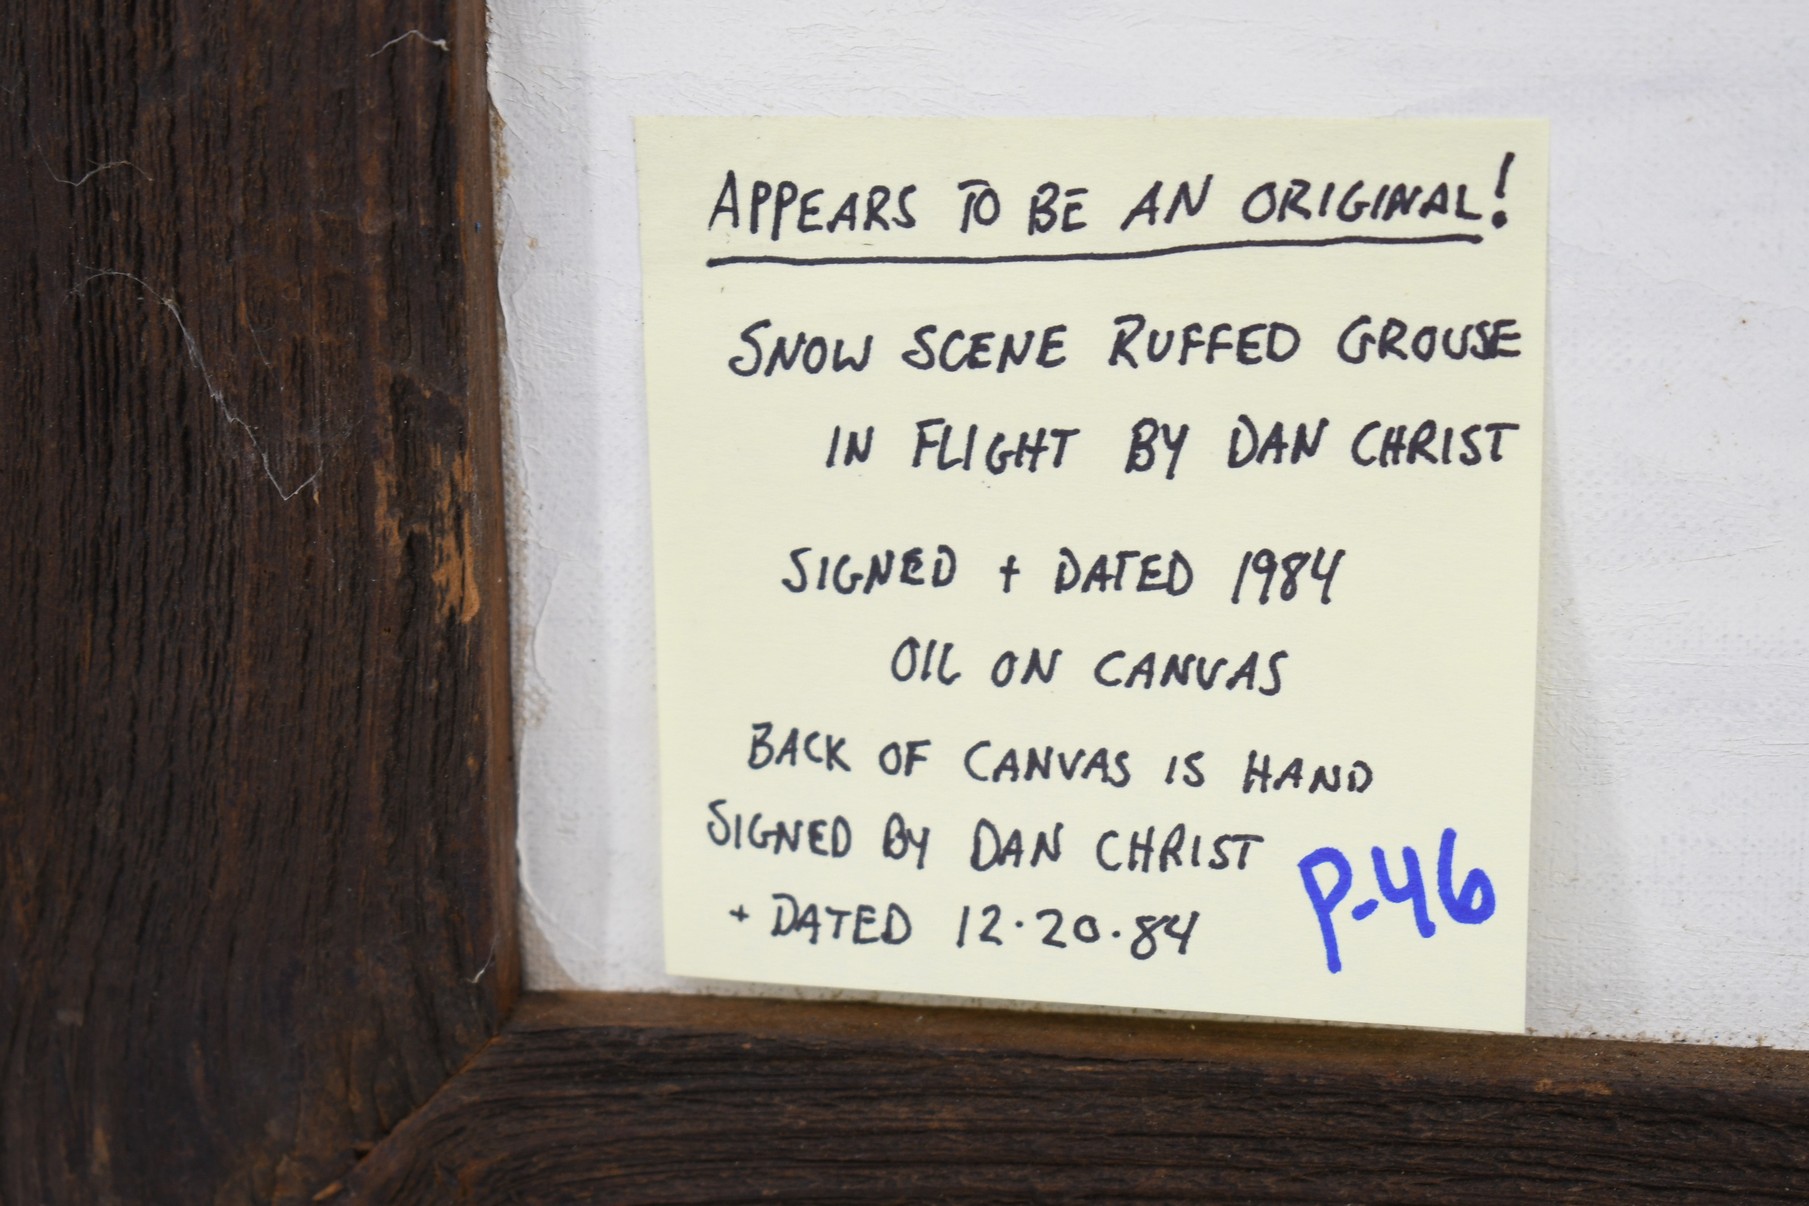 APPEARS TO BE AN ORIGINAL!
SNOW SCENE RUFFED GROUSE
IN FLIGHT BY DAN CHRIST
SIGNED + DATED 1984
OIL ON CANVAS
BACK OF CANVAS IS HAND
SIGNED BY DAN CHRIST
+ DATED 12.20.84
P-46